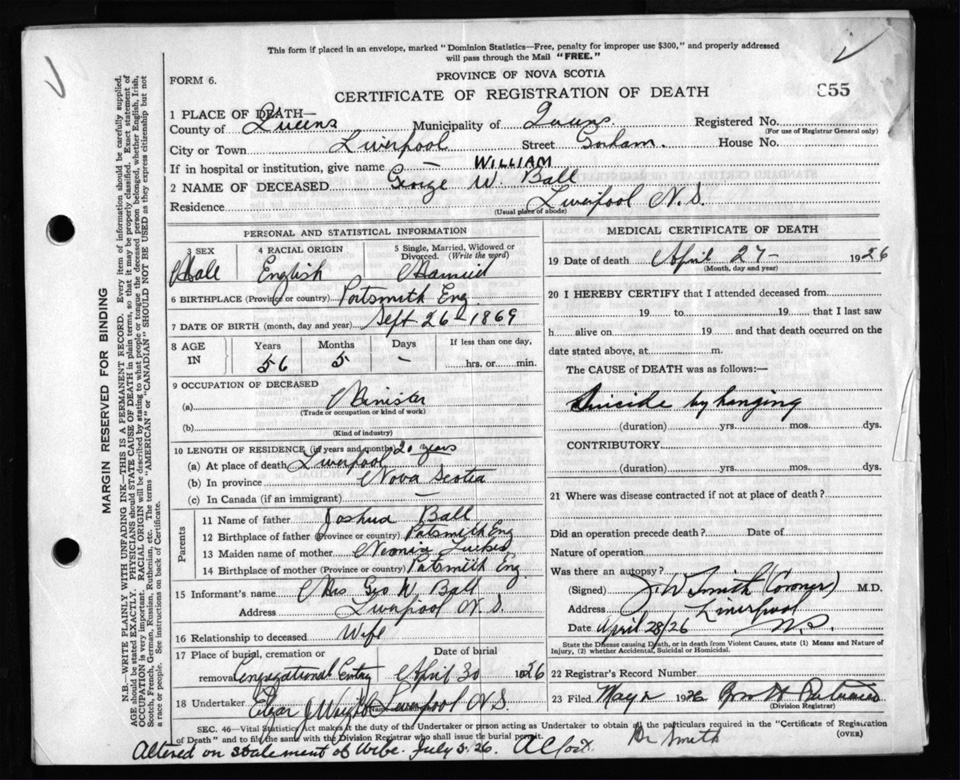 This form if placed in an envelope, marked "Dominion Statistics—Free, penalty for improper use $300," and properly addressed
will pass through the Mail "FREE."
FORM 6.
PROVINCE OF NOVA SCOTIA
CERTIFICATE OF REGISTRATION OF DEATH
855
1 PLACE OF DEATH—
County of Queens Municipality of Queens Registered No.
(For use of Registrar General only)
City or Town Liverpool Street Gorham. House No.
If in hospital or institution, give name —
WILLIAM
2 NAME OF DECEASED George W. Ball
Residence Liverpool N.S.
(Usual place of abode)
PERSONAL AND STATISTICAL INFORMATION
3 SEX Male
4 RACIAL ORIGIN English
5 Single, Married, Widowed or Divorced. (Write the word) Married
6 BIRTHPLACE (Province or country) Portsmith Eng.
7 DATE OF BIRTH (month, day and year) Sept. 26 - 1869
8 AGE IN
Years Months Days If less than one day,
56 5 — hrs. or min.
9 OCCUPATION OF DECEASED
(a) Minister
(Trade or occupation or kind of work)
(b)
(Kind of industry)
10 LENGTH OF RESIDENCE (in years and months) 20 years
(a) At place of death Liverpool
(b) In province Nova Scotia
(c) In Canada (if an immigrant) —
Parents
11 Name of father Joshua Ball
12 Birthplace of father (Province or country) Portsmith Eng
13 Maiden name of mother
14 Birthplace of mother (Province or country) Portsmith Eng.
15 Informant's name Mrs Geo W. Ball
Address Liverpool N.S.
16 Relationship to deceased Wife
17 Place of burial, cremation or removal Date of burial
Congregational April 30 1926
18 Undertaker J Wright Liverpool N.S.
MEDICAL CERTIFICATE OF DEATH
19 Date of death April 27 - 1926
(Month, day and year)
20 I HEREBY CERTIFY that I attended deceased from
19 to 19 that I last saw
h alive on 19 and that death occurred on the
date stated above, at m.
The CAUSE OF DEATH was as follows:—
Suicide by hanging
(duration) yrs. mos. dys.
CONTRIBUTORY.
(duration) yrs. mos. dys.
21 Where was disease contracted if not at place of death?
Did an operation precede death? Date of
Nature of operation
Was there an autopsy?
(Signed) J W Smith (Coroner) M.D.
Address Liverpool
Date April 28/26 N.S.
State the Disease causing Death, or in death from Violent Causes, state (1) Means and Nature of Injury, (2) whether Accidental, Suicidal or Homicidal.
22 Registrar's Record Number
23 Filed May 1926
(Division Registrar)
SEC. 46—Vital Statistics Act makes it the duty of the Undertaker or person acting as Undertaker to obtain all the particulars required in the "Certificate of Registration
of Death" and file the same with the Division Registrar who shall issue the burial permit.
(OVER)
Dr Smith
Altered on statement of wife. July 5. 26.
MARGIN RESERVED FOR BINDING
N.B.—WRITE PLAINLY WITH UNFADING INK—THIS IS A PERMANENT RECORD. Every item of information should be carefully supplied.
AGE should be stated EXACTLY. PHYSICIANS should STATE CAUSE OF DEATH in plain terms, so that it may be properly classified. Exact statement of
OCCUPATION is very important. RACIAL ORIGIN will be described by stating to what people or tongue the deceased person belonged, whether English, Irish,
Scotch, French, German, Russian, Ruthenian, etc. The terms "AMERICAN" or "CANADIAN" SHOULD NOT BE USED as they express citizenship but not
a race or people. See instructions on back of Certificate.